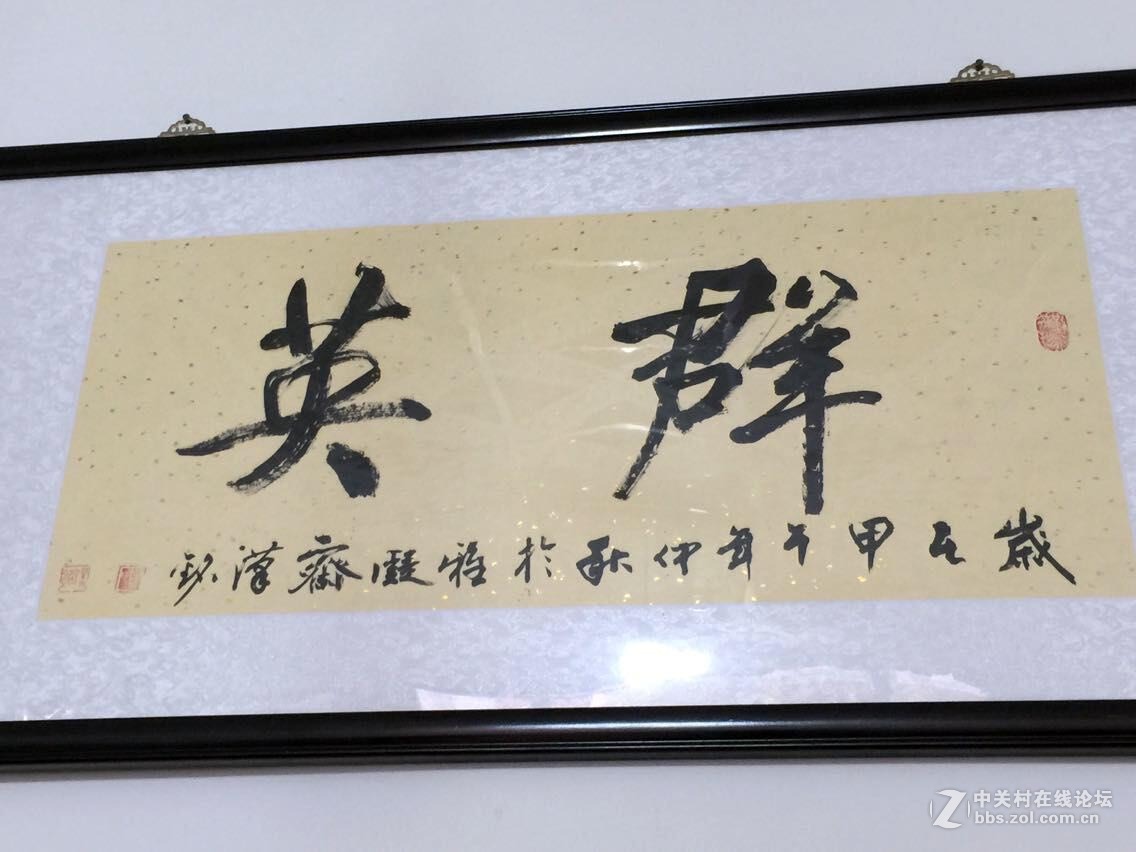 群英
歲在甲午年仲秋於雅凝齋漢
中关村在线论坛
bbs.zol.com.cn